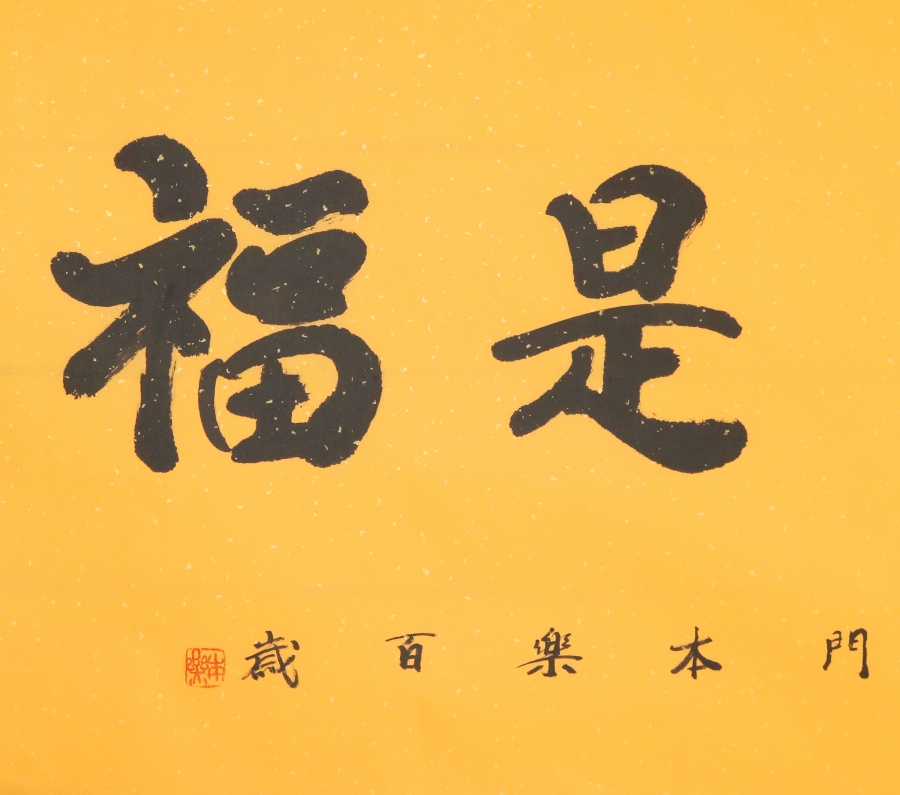 是福
門本樂百歲